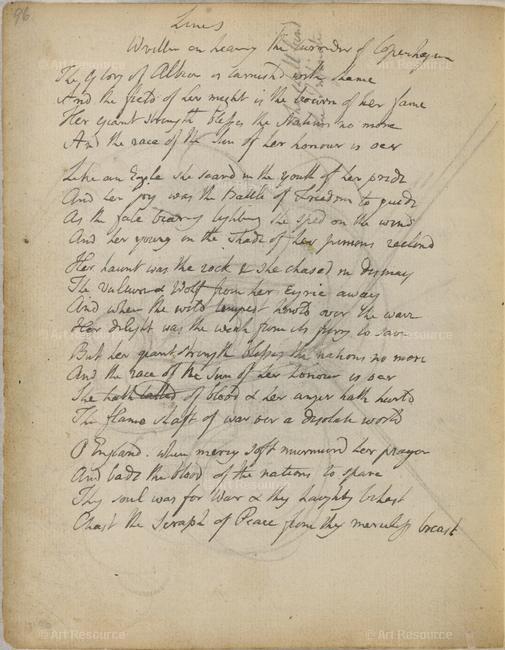 96
Lines
Written on hearing the surrender of Copenhagen
The Glory of Albion is tarnishd with shame
And the field of her might is the bourn of her fame
Her giant strength blesses the Nations no more
And the race of the Sun of her honour is oer
Like an Eagle she soard in the youth of her pride
And her joy was the Battle of Freedom to guide
As the fate bearing lightning she sped on the wind
And her young in the shade of her pinions reclind
Her haunt was the rock & she chased in dismay
The Vulture & Wolf from her Eyrie away
And when the wild tempest howld over the wave
Her delight was the weak from its fury to save
But her giant strength blesses the nations no more
And the race of the Sun of her honour is oer
She hath of blood & her anger hath hurld
The flame shaft of war oer a desolate world
O England. when mercy soft murmurd her prayer
And bade the blood of the nations to spare
Thy soul was for War & thy haughty behest
Chast the Seraph of Peace from thy merciless breast
© Art Resource
© Art Resource
© Art Resource
© Art Resource